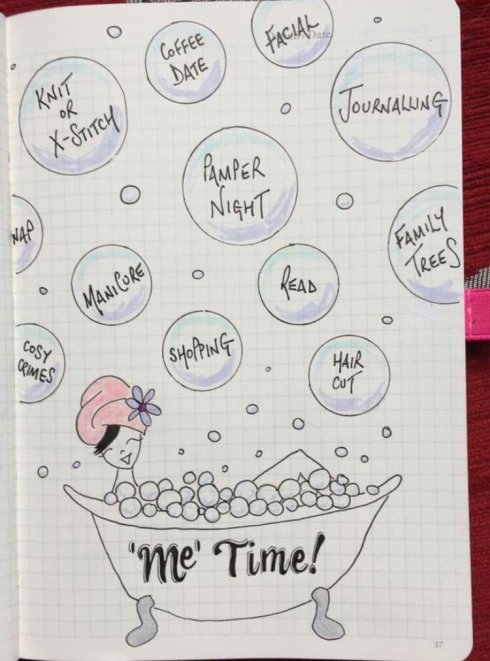 Date
FACIAL
COFFEE
DATE
KNIT
OR
X-STITCH
JOURNALLING
PAMPER
NIGHT
NAP
FAMILY
TREES
MANICURE
READ
COSY
CRIMES
SHOPPING
HAIR
CUT
'Me' Time!
37